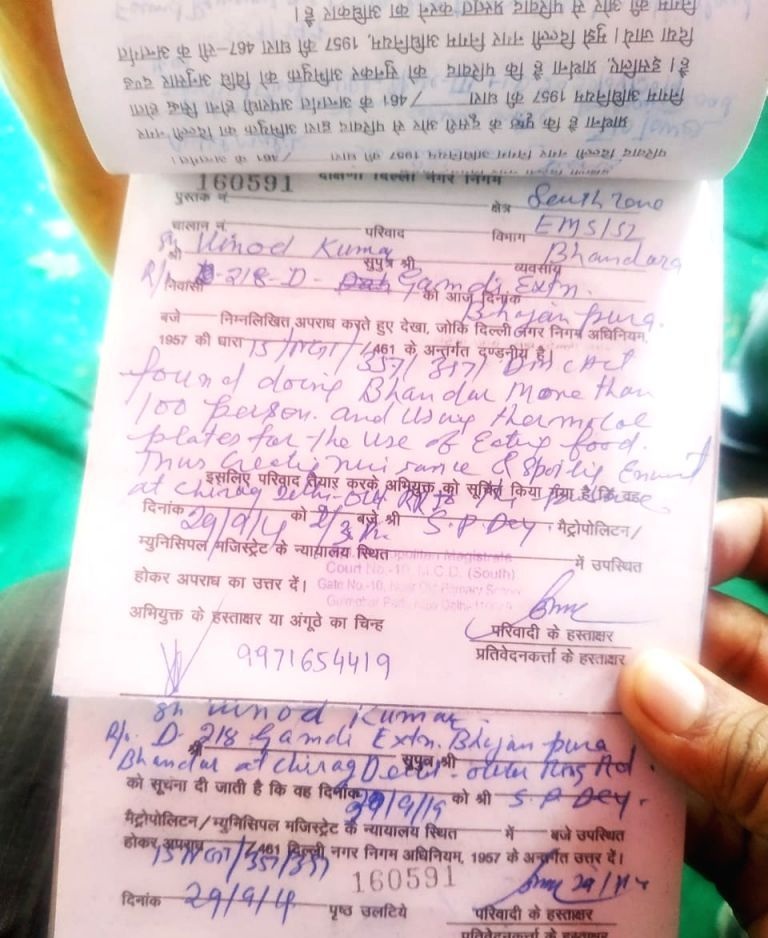 निगम की ओर से परिवाद प्रस्तुत करने का अधिकार है।
दिया जाये। मुझे दिल्ली नगर निगम अधिनियम, 1957 की धारा 467-सी के अन्तर्गत
है। इसलिए, प्रार्थना है कि परिवाद को सुनकर अभियुक्त को विधि अनुसार दण्ड
निगम अधिनियम 1957 की धारा /461 के अन्तर्गत अपराधी होना सिद्ध होता
प्रार्थना है कि पृष्ठ के दूसरी ओर से परिवाद द्वारा अभियुक्त का दिल्ली नगर
परिवाद दिल्ली नगर निगम अधिनियम 1957 की धारा /461 के अन्तर्गत।
दक्षिणी दिल्ली नगर निगम
पुस्तक नं 160591 क्षेत्र South Zone
चालान नं. परिवाद विभाग EMS/SZ
श्री Sh Vinod Kumar सुपुत्र श्री व्यवसाय Bhandara
निवासी R/o D-218-D- Gamdi Extn. को आज दिनांक
Bhajan pura.
बजे निम्नलिखित अपराध करते हुए देखा, जोकि दिल्ली नगर निगम अधिनियम,
1957 की धारा /461 के अन्तर्गत दण्डनीय है।
357/ 397/ DMC Act
found doing Bhandar More than
100 person. and using thermocol
plates for the use of Eating food.
Thus Creating nuisance & Spoiling
इसलिए परिवाद तैयार करके अभियुक्त को सूचित किया गया है कि वह
at chirag Delhi
दिनांक 29/9/14 को 2/3 बजे श्री S.P. Dey. मैट्रोपोलिटन/
म्युनिसिपल मजिस्ट्रेट के न्यायालय स्थित में उपस्थित
Metropolitan Magistrate
Court No.-10, M.C.D. (South)
होकर अपराध का उत्तर दें।
Gate No.-10, Near Old Primary School
अभियुक्त के हस्ताक्षर या अंगूठे का चिन्ह
परिवादी के हस्ताक्षर
प्रतिवेदनकर्त्ता के हस्ताक्षर
9971654419
Sh Vinod Kumar
R/o. D-218 Gamdi Extn. Bhajan pura
श्री सुपुत्र श्री
Bhandar at chirag Delhi - outer Ring Rd.
को सूचना दी जाती है कि वह दिनांक 29/9/14 को श्री S. P. Dey.
मैट्रोपोलिटन/म्युनिसिपल मजिस्ट्रेट के न्यायालय स्थित में बजे उपस्थित
होकर अपराध /461 दिल्ली नगर निगम अधिनियम, 1957 के अन्तर्गत उत्तर दें।
160591
दिनांक 29/9/14 पृष्ठ उलटिये परिवादी के हस्ताक्षर
प्रतिवेदनकर्त्ता के हस्ताक्षर